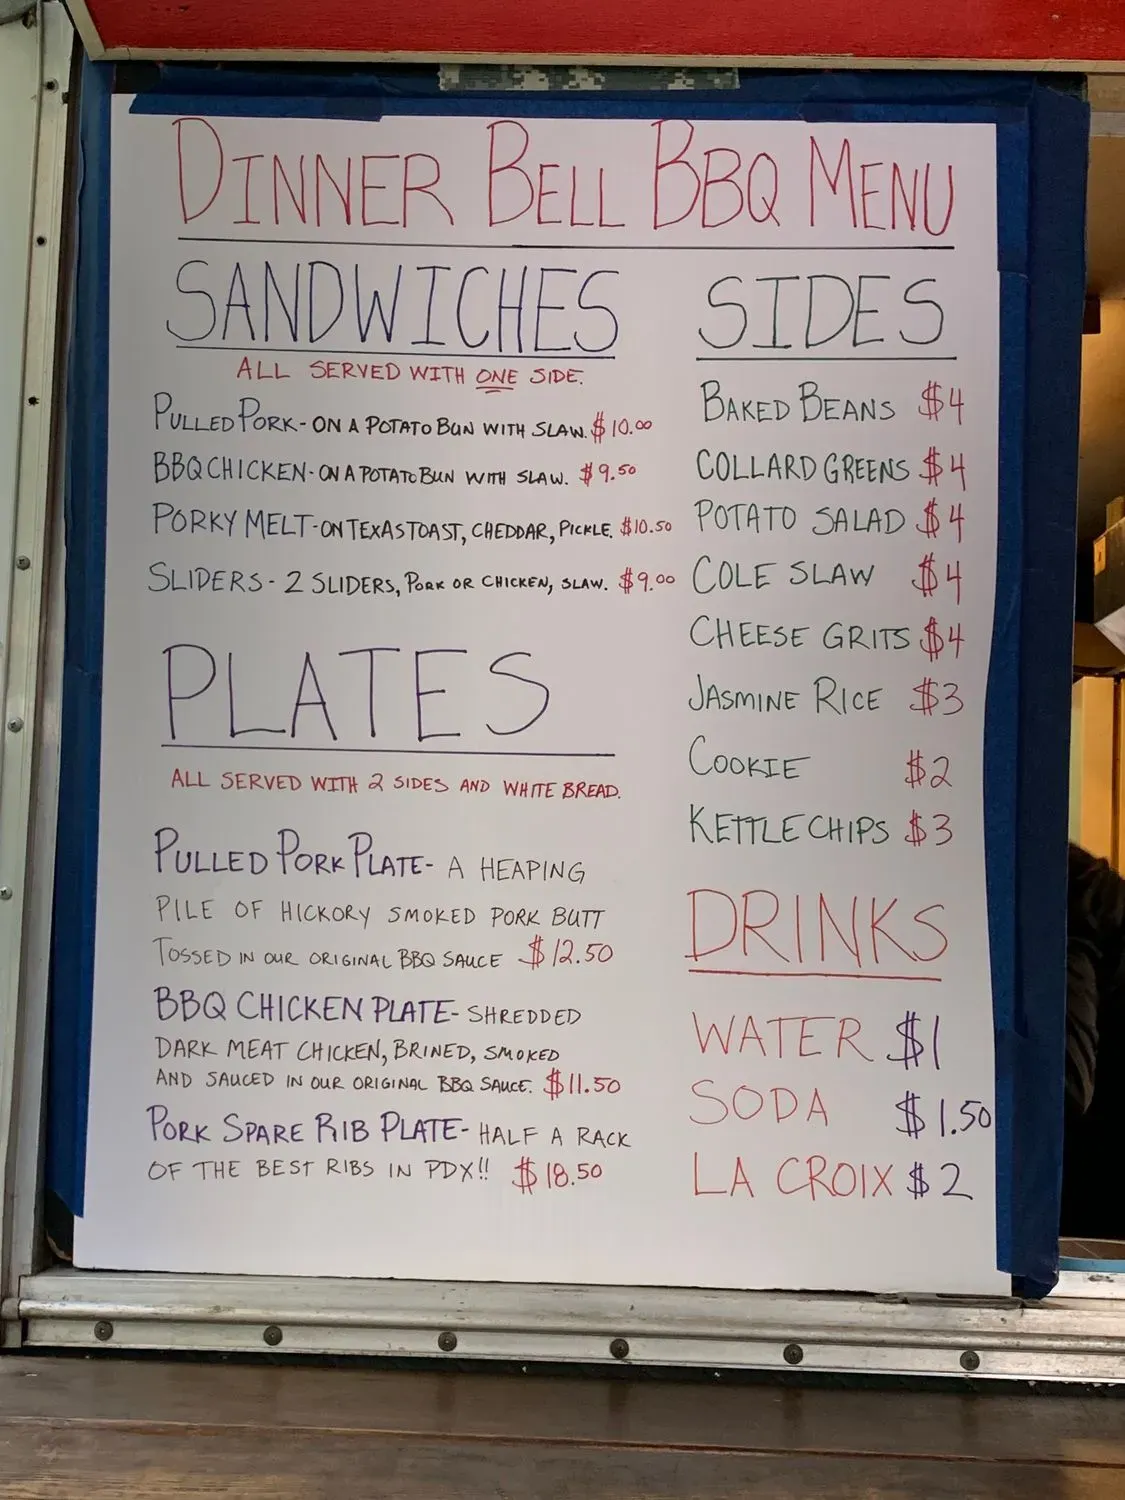 DINNER BELL BBQ MENU
SANDWICHES
ALL SERVED WITH ONE SIDE.
PULLED PORK - ON A POTATO BUN WITH SLAW. $10.00
BBQ CHICKEN - ON A POTATO BUN WITH SLAW. $9.50
PORKY MELT - ON TEXAS TOAST, CHEDDAR, PICKLE. $10.50
SLIDERS - 2 SLIDERS, PORK OR CHICKEN, SLAW. $9.00
PLATES
ALL SERVED WITH 2 SIDES AND WHITE BREAD.
PULLED PORK PLATE - A HEAPING
PILE OF HICKORY SMOKED PORK BUTT
TOSSED IN OUR ORIGINAL BBQ SAUCE $12.50
BBQ CHICKEN PLATE - SHREDDED
DARK MEAT CHICKEN, BRINED, SMOKED
AND SAUCED IN OUR ORIGINAL BBQ SAUCE. $11.50
PORK SPARE RIB PLATE - HALF A RACK
OF THE BEST RIBS IN PDX!! $18.50
SIDES
BAKED BEANS $4
COLLARD GREENS $4
POTATO SALAD $4
COLE SLAW $4
CHEESE GRITS $4
JASMINE RICE $3
COOKIE $2
KETTLE CHIPS $3
DRINKS
WATER $1
SODA $1.50
LA CROIX $2